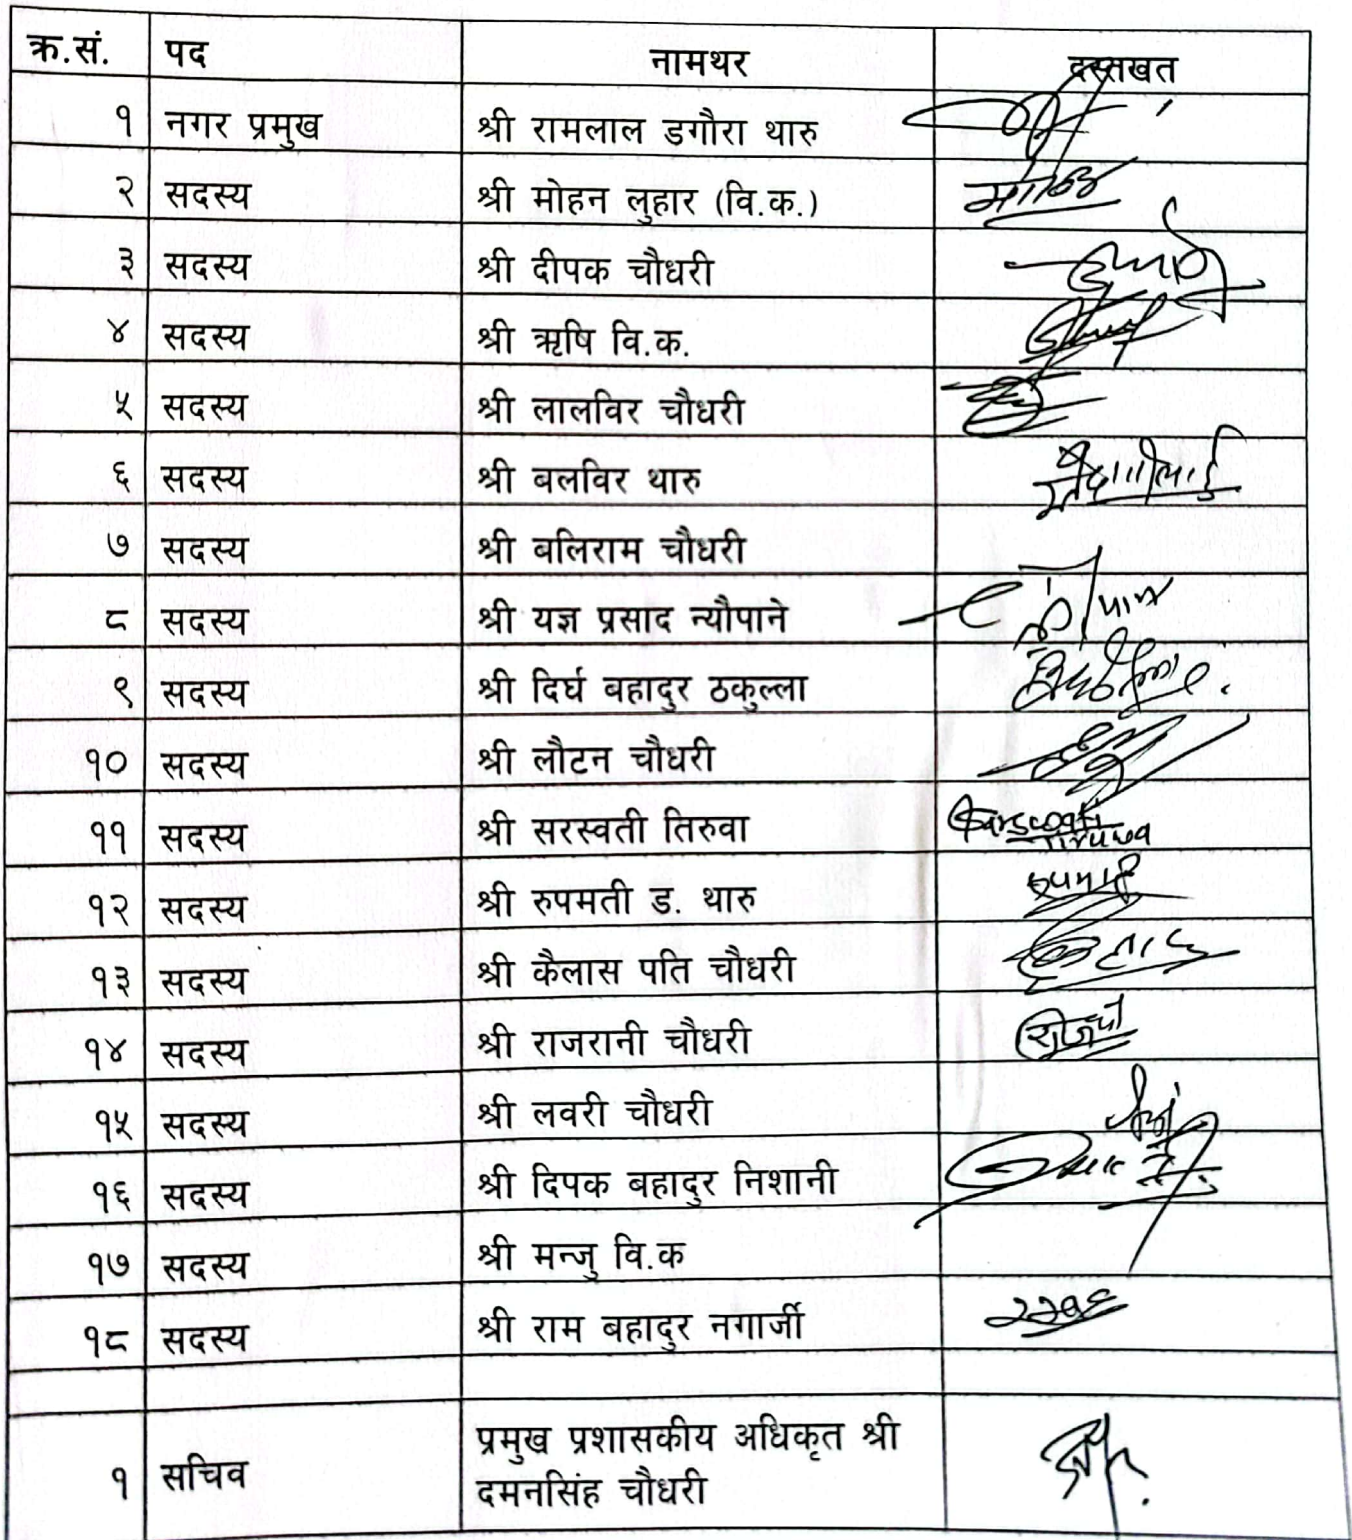 क्र.सं. पद नामथर दस्तखत
१ नगर प्रमुख श्री रामलाल डगौरा थारु
२ सदस्य श्री मोहन लुहार (वि.क.)
३ सदस्य श्री दीपक चौधरी
४ सदस्य श्री ऋषि वि.क.
५ सदस्य श्री लालविर चौधरी
६ सदस्य श्री बलविर थारु
७ सदस्य श्री बलिराम चौधरी
८ सदस्य श्री यज्ञ प्रसाद न्यौपाने
९ सदस्य श्री दिर्घ बहादुर ठकुल्ला
१० सदस्य श्री लौटन चौधरी
११ सदस्य श्री सरस्वती तिरुवा Sarswati
Tiruwa
१२ सदस्य श्री रुपमती ड. थारु
१३ सदस्य श्री कैलास पति चौधरी
१४ सदस्य श्री राजरानी चौधरी
१५ सदस्य श्री लवरी चौधरी
१६ सदस्य श्री दिपक बहादुर निशानी
१७ सदस्य श्री मन्जु वि.क
१८ सदस्य श्री राम बहादुर नगार्जी
१ सचिव प्रमुख प्रशासकीय अधिकृत श्री
दमनसिंह चौधरी